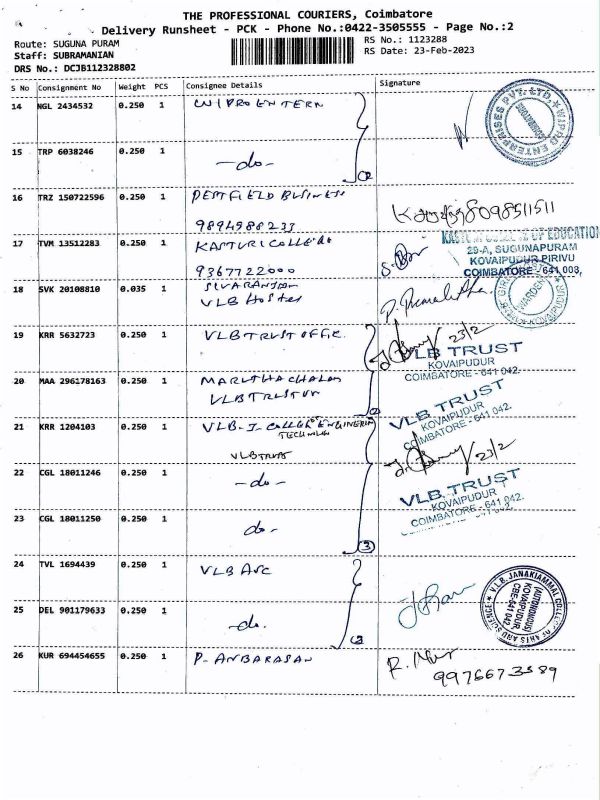 THE PROFESSIONAL COURIERS, Coimbatore
Delivery Runsheet - PCK - Phone No.:0422-3505555 - Page No.:2
Route: SUGUNA PURAM
RS No.: 1123288
Staff: SUBRAMANIAN
RS Date: 23-Feb-2023
DRS No.: DCJB112328802
S No Consignment No Weight PCS Consignee Details Signature
14 NGL 2434532 0.250 1 WIPRO ENTERN
WIPRO ENTERPRISES PVT. LTD.
15 TRP 6038246 0.250 1 -do-
16 TRZ 150722596 0.250 1 PESTFIELD BUSINESS
9894988233
8098511511
17 TVM 13512283 0.250 1 KASTURI COLLEGE
9367722000
OF EDUCATION
29-A, SUGUNAPURAM
KOVAIPUDUR PIRIVU
COIMBATORE - 641 003,
18 SVK 20108810 0.035 1 SIVARANJANI
VLB Hostel
WARDEN
KOVAIPUDUR
19 KRR 5632723 0.250 1 VLB TRUST OFFIC.
23/2
VLB TRUST
KOVAIPUDUR
COIMBATORE - 641 042.
20 MAA 296178163 0.250 1 MARUTHACHALAM
VLB TRUST
VLB TRUST
KOVAIPUDUR
COIMBATORE - 641 042.
21 KRR 1204103 0.250 1 VLB-J-COLLEGE OF ENGINEERIN
VLB TRUST
23/2
22 CGL 18011246 0.250 1 -do-
VLB TRUST
KOVAIPUDUR
COIMBATORE - 641 042.
23 CGL 18011250 0.250 1 do-
3
24 TVL 1694439 0.250 1 VLB ASC
V.L.B. JANAKIAMMAL COLLEGE OF ARTS AND SCIENCE
(AUTONOMOUS)
KOVAIPUDUR
CBE-641 042
25 DEL 901179633 0.250 1 -do-
2
26 KUR 694454655 0.250 1 P. ANBARASAN